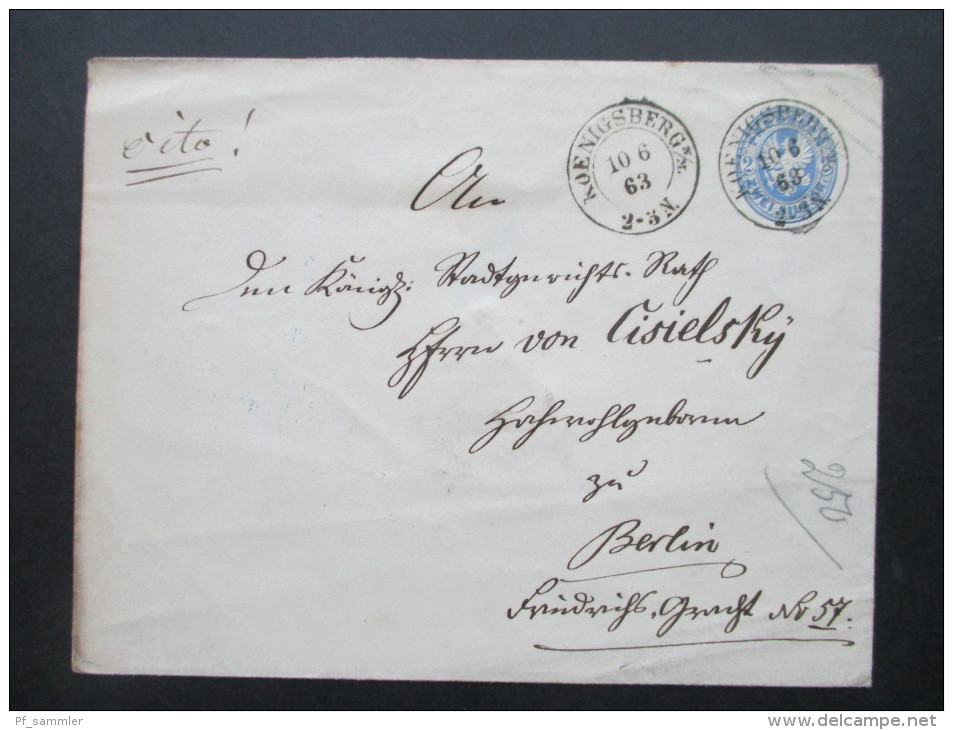 cito!
KOENIGSBERG N/M.
10 6
63
2-3 N.
KOENIGSBERG N/M.
10 6
63
2-3 N.
An
den Königl: Stadtgerichts-Rath
Herrn von Cisielsky
Hochwohlgeboren
zu
Berlin
Friedrichs-Gracht No 57.
Pf_sammler
http://www.delcampe.net